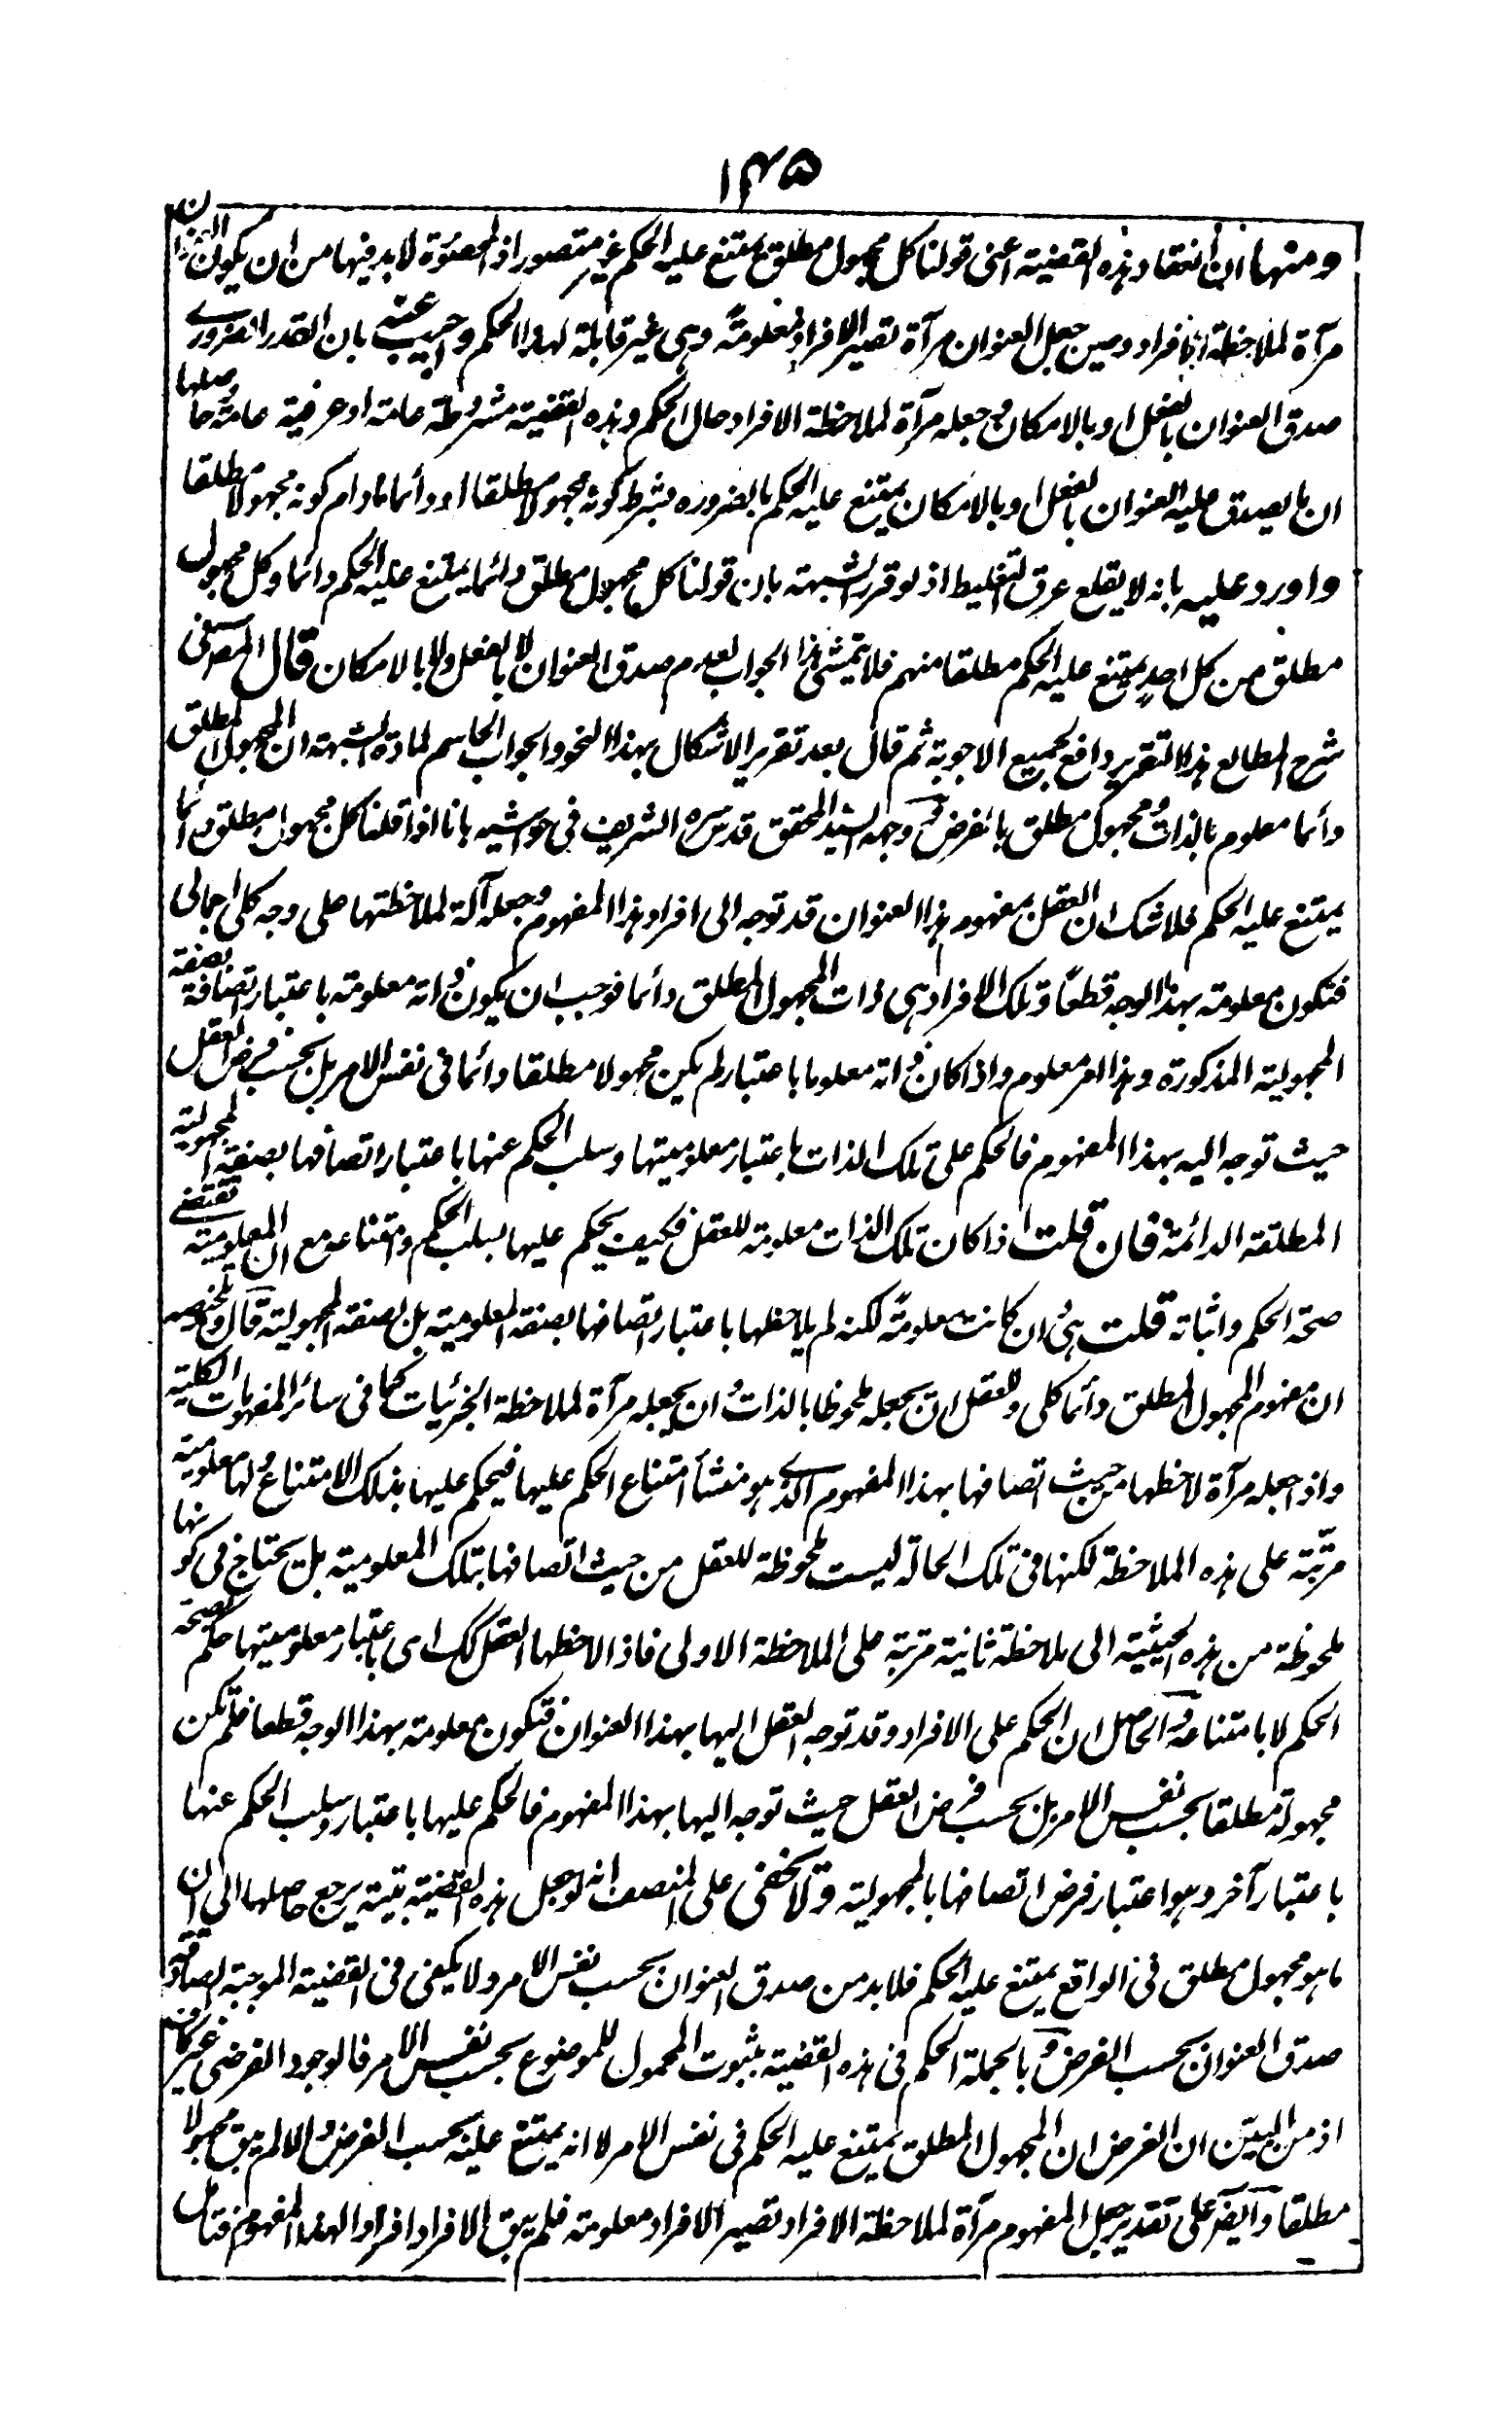 ١٣٥
ومنها ان انعقاد هذه القضية اعنى قولنا كل مجهول مطلق يمتنع عليه الحكم غير متصور اذ المحصورة لا بد فيها من ان يكون العنوان
مرآة لملاحظة الافراد وحين جعل العنوان مرآة تصير الافراد معلومة وهى غير قابلة لهذا الحكم واجيب عنه بان القدر الضرورى
صدق العنوان بالفعل او بالامكان وجعله مرآة لملاحظة الافراد حال الحكم وهذه القضية مشروطة عامة او عرفية عامة حاصلها
ان ما يصدق عليه العنوان بالفعل او بالامكان يمتنع عليه الحكم بالضروره بشرط كونه مجهولا مطلقا او دائما ما دام كونه مجهولا مطلقا
واورد عليه بانه لا يقلع عرق التغليط اذ لو قرر الشبهة بان قولنا كل مجهول مطلق دائما يمتنع عليه الحكم دائما وكل مجهول
مطلق من كل احد يمتنع عليه الحكم مطلقا منهم فلا يتمشى هذا الجواب لعدم صدق العنوان لا بالفعل ولا بالامكان قال المصرفى
شرح المطالع هذا التقرير دافع لجميع الاجوبة ثم قال بعد تقرير الاشكال بهذا النحو والجواب الحاسم لمادة الشبهة ان المجهول المطلق
دائما معلوم بالذات ومجهول مطلق بالفرض ووجهه السيد المحقق قدس سره الشريف فى حواشيه بانا اذا قلنا كل مجهول مطلق دائما
يمتنع عليه الحكم فلا شك ان العقل بمفهوم هذا العنوان قد توجه الى افراد هذا المفهوم وجعله آلة لملاحظتها على وجه كلى اجمالى
فتكون معلومة بهذا الوجه قطعا وتلك الافراد هى ذات المجهول المطلق دائما فوجب ان يكون ذاته معلومة باعتبار اتصافه بصفة
المجهولية المذكورة وهذا امر معلوم واذا كان ذاته معلوما باعتبار لم يكن مجهولا مطلقا دائما فى نفس الامر بل بحسب فرض العقل
حيث توجه اليه بهذا المفهوم فالحكم على تلك الذات باعتبار معلوميتها وسلب الحكم عنها باعتبار اتصافها بصفة المجهولية
المطلقة الدائمة فان قلت اذا كان تلك الذات معلومة للعقل فكيف يحكم عليها بسلب الحكم وامتناعه مع ان المعلومية تقتضى
صحة الحكم واثباته قلت هى وان كانت معلومة لكنه لم يلاحظها باعتبار اتصافها بصفة المعلومية بل بصفة المجهولية قال وتلخيصه
ان مفهوم المجهول المطلق دائما كلى وللعقل ان يجعله ملحوظا بالذات وان يجعله مرآة لملاحظة الجزئيات كما فى سائر المفهومات الكلية
واذا جعله مرآة لاحظها من حيث اتصافها بهذا المفهوم الذى هو منشأ امتناع الحكم عليها فيحكم عليها بذلك الامتناع ولها معلومية
مرتبة على هذه الملاحظة لكنها فى تلك الحالة ليست ملحوظة للعقل من حيث اتصافها بتلك المعلومية بل يحتاج فى كونها
ملحوظة من هذه الحيثية الى ملاحظة ثانية مرتبة على الملاحظة الاولى فاذا لاحظها العقل كك اى باعتبار معلوميتها حكم بصحة
الحكم لا بامتناعه والحاصل ان الحكم على الافراد وقد توجه العقل اليها بهذا العنوان فتكون معلومة بهذا الوجه قطعا فلم تكن
مجهولة مطلقا بحسب نفس الامر بل بحسب فرض العقل حيث توجه اليها بهذا المفهوم فالحكم عليها باعتبار وسلب الحكم عنها
باعتبار آخر وهو اعتبار فرض اتصافها بالمجهولية ولا يخفى على المنصف انه لو جعل هذه القضية بتية يرجع حاصلها الى ان
ما هو مجهول مطلق فى الواقع يمتنع عليه الحكم فلا بد من صدق العنوان بحسب نفس الامر ولا يكفى فى القضية الموجبة الصادقة
صدق العنوان بحسب الفرض وبالجملة الحكم فى هذه القضية بثبوت المحمول للموضوع بحسب نفس الامر فالوجود الفرضى غير كاف
اذ من البين ان الغرض ان المجهول المطلق يمتنع عليه الحكم فى نفس الامر لا انه يمتنع عليه بحسب الفرض والا لم يبق مجهولا
مطلقا وايضا على تقدير جعل المفهوم مرآة لملاحظة الافراد تصير الافراد معلومة فلم يبق الافراد افرادا لهذا المفهوم فتامل